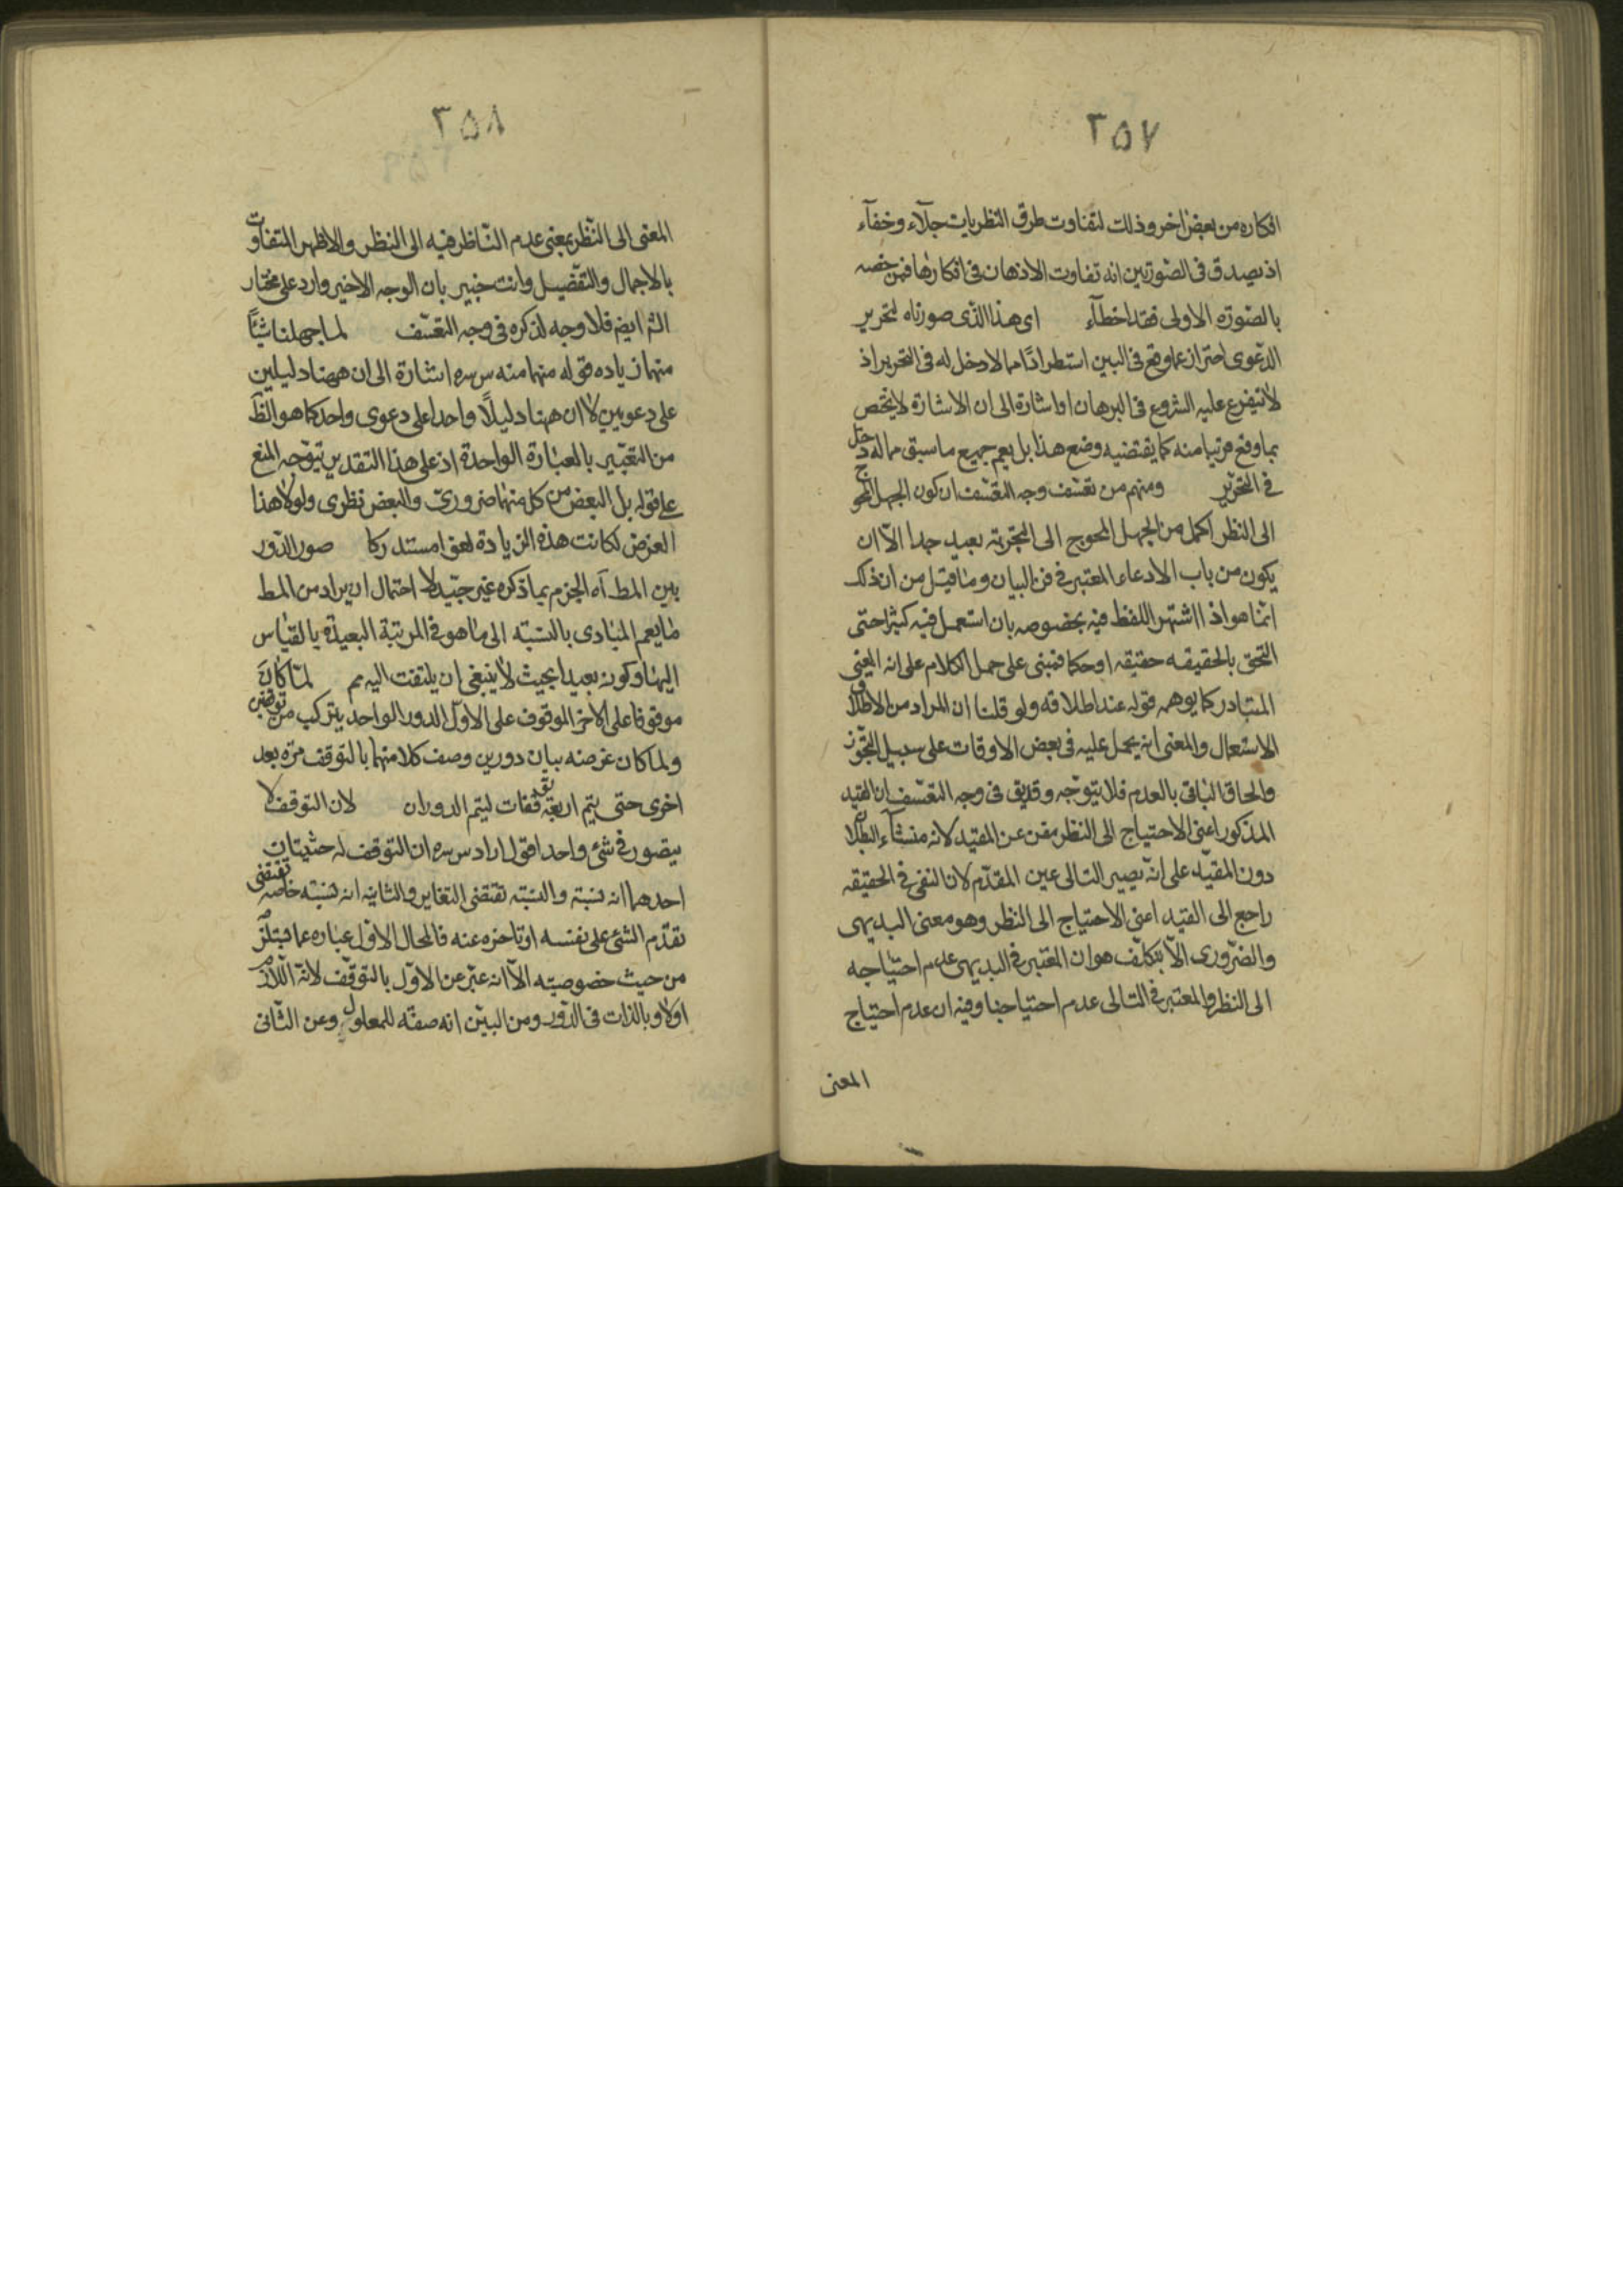 ٢٥٧
افكاره من بعض اخر وذلك لتفاوت طرق النظريات جلآء وخفآء
اذ يصدق فى الصورتين انه تفاوت الاذهان فى افكارها فمن خصه
بالصورة الاولى فقد اخطآء اى هذا الذى صورناه لتحرير
الدعوى احتراز عما وقع فى البين استطرادًا مما لا دخل له فى التحرير اذ
لا يتفرع عليه الشروع فى البرهان او اشارة الى ان الاشارة لا يختص
بما وقع قريبا منه كما يقتضيه وضع هذا بل يعم جميع ما سبق مما له دخل
فى التحرير ومنهم من تعسف وجه التعسف ان كون الجهل المحوج
الى النظر اكمل من الجهل المحوج الى التجربة بعيد جدا الّا ان
يكون من باب الادعاء المعتبر فى فن البيان وما قيل من ان ذلك
انما هو اذا اشتهر اللفظ فيه بخصوصه بان استعمل فيه كثيرا حتى
التحق بالحقيقه حقيقة او حكما فمبنى على حمل الكلام على انه المعنى
المتبادر كما يوهمه قوله عند اطلاقه ولو قلنا ان المراد من الاطلاق
الاستعمال والمعنى انه يحمل عليه فى بعض الاوقات على سبيل التجوّز
والحاق الباقى بالعدم فلا يتوجّه وقد يق فى وجه التعسف ان القيد
المذكور اعنى الاحتياج الى النظر مغن عن المقيد لانه منشآء البطلان
دون المقيد على انّه يصير التالى عين المقدّم لان النفى فى الحقيقه
راجع الى القيد اعنى الاحتياج الى النظر وهو معنى البديهى
والضرورى الّا بتكلّف هو ان المعتبر فى البديهى عدم احتياجه
الى النظر والمعتبر فى التالى عدم احتياجنا وفيه ان عدم احتياج
المعنى
٢٥٨
المعنى الى النظر بمعنى عدم النّاظر فيه الى النظر والاظهر التفاوت
بالاجمال والتفضيل وانت خبير بان الوجه الاخير وارد على مختار
الش ايض فلا وجه لذكره فى وجه التعسّف لما جهلنا شيئًا
منهما زياده قوله منهما منه س سره اشارة الى ان ههنا دليلين
على دعويين لا ان ههنا دليلًا واحدا على دعوى واحد كما هو الظّ
من التعبير بالعبارة الواحدة اذ على هذا التقدير يتوجه المنع
على قوله بل البعض من كل منهما ضرورىّ والبعض نظرى ولولا هذا
الغرض لكانت هذه الزيادة لغوا مستدركا صور الدّور
بين المط آه الجزم بما ذكره غير جيّد لا احتمال ان يراد من المط
ما يعم المبادى بالنسبة الى ما هو فى المرتبة البعيدة بالقياس
اليها وكونه بعيدا بحيث لا ينبغى ان يلتفت اليه مم لمّا كان
موقوفا على الاخر الموقوف على الاوّل الدور الواحد يتركب من توقفين
ولما كان غرضه بيان دورين وصف كلا منهما بالتوقف مرّة بعد
اخرى حتى يتم اربعة توقفات ليتم الدوران لان التوقف لا
يتصور فى شئ واحد اقول اراد س سره ان التوقف له حيثيتان
احدهما انه نسبة والنسبة تقتضى التغاير والثانيه انه نسبة خاصه تقتضى
تقدّم الشئ على نفسه او تاخره عنه فالمحال الاول عباره عما يستلزم
من حيث خصوصيته الّا انه عبّر عن الاوّل بالتوقّف لانّه اللّازم
اولا وبالذات فى الدّور ومن البيّن انه صفة للمعلول وعن الثّانى